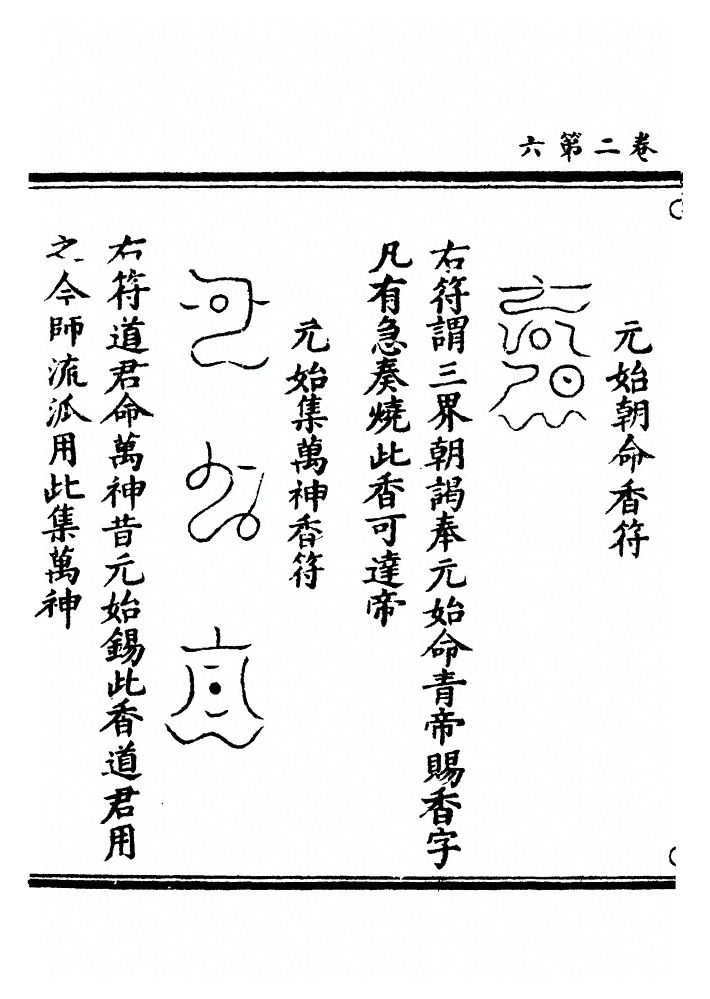 卷二第六
元始朝命香符
右符謂三界朝謁奉元始命青帝賜香字
凡有急奏燒此香可達帝
元始集萬神香符
右符道君命萬神昔元始錫此香道君用
之今師流派用此集萬神